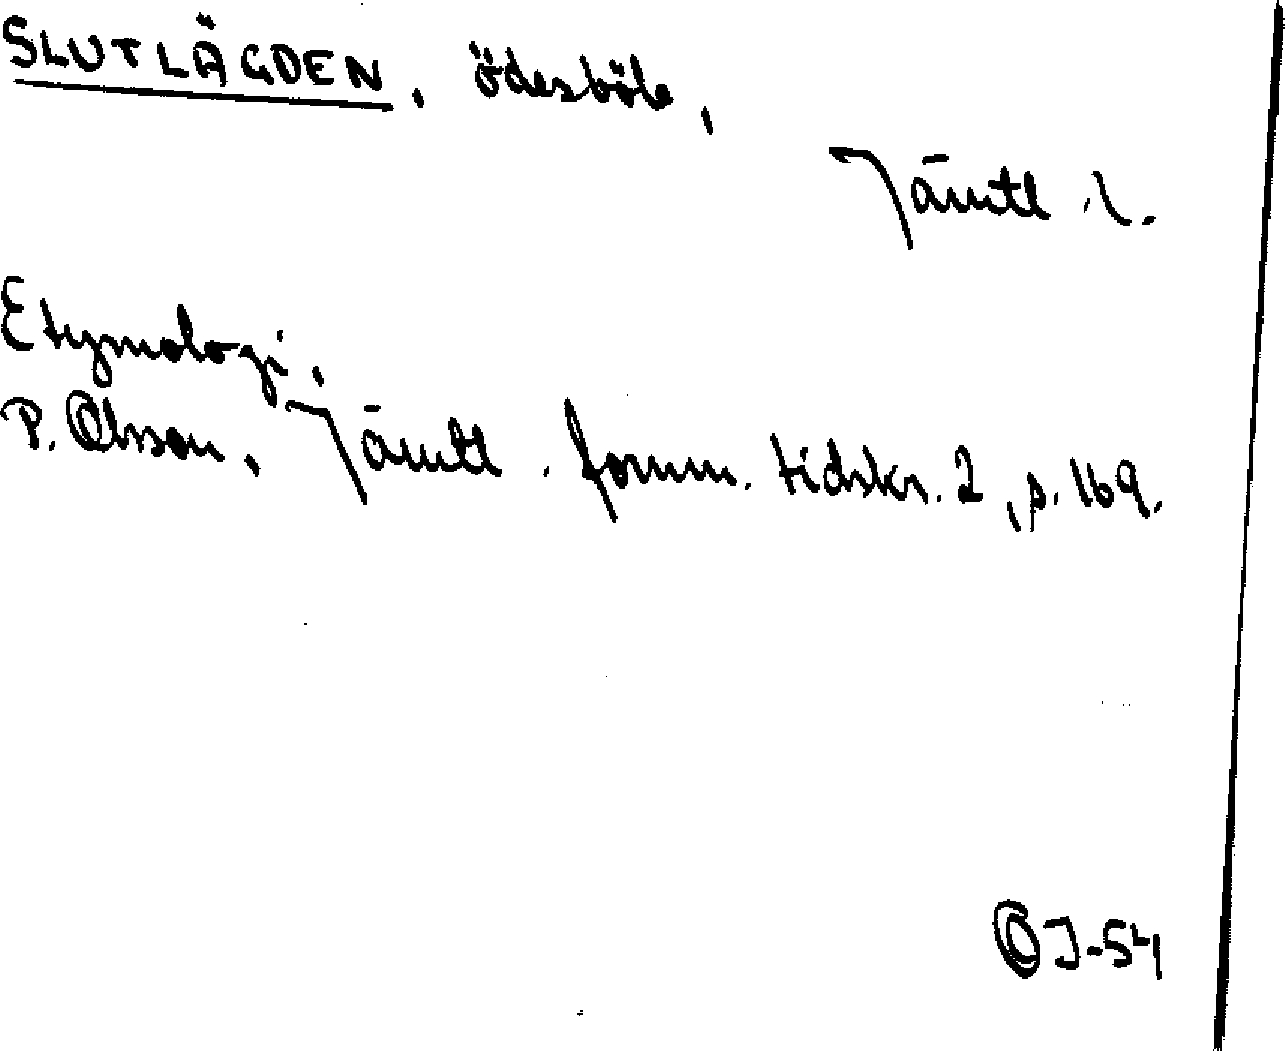 SLUTLÄGDEN, ödesböle,
Jämtl. l.
Etymologi.
P. Olsson, Jämtl. fornm. tidskr. 2, s. 169.
OJ-54